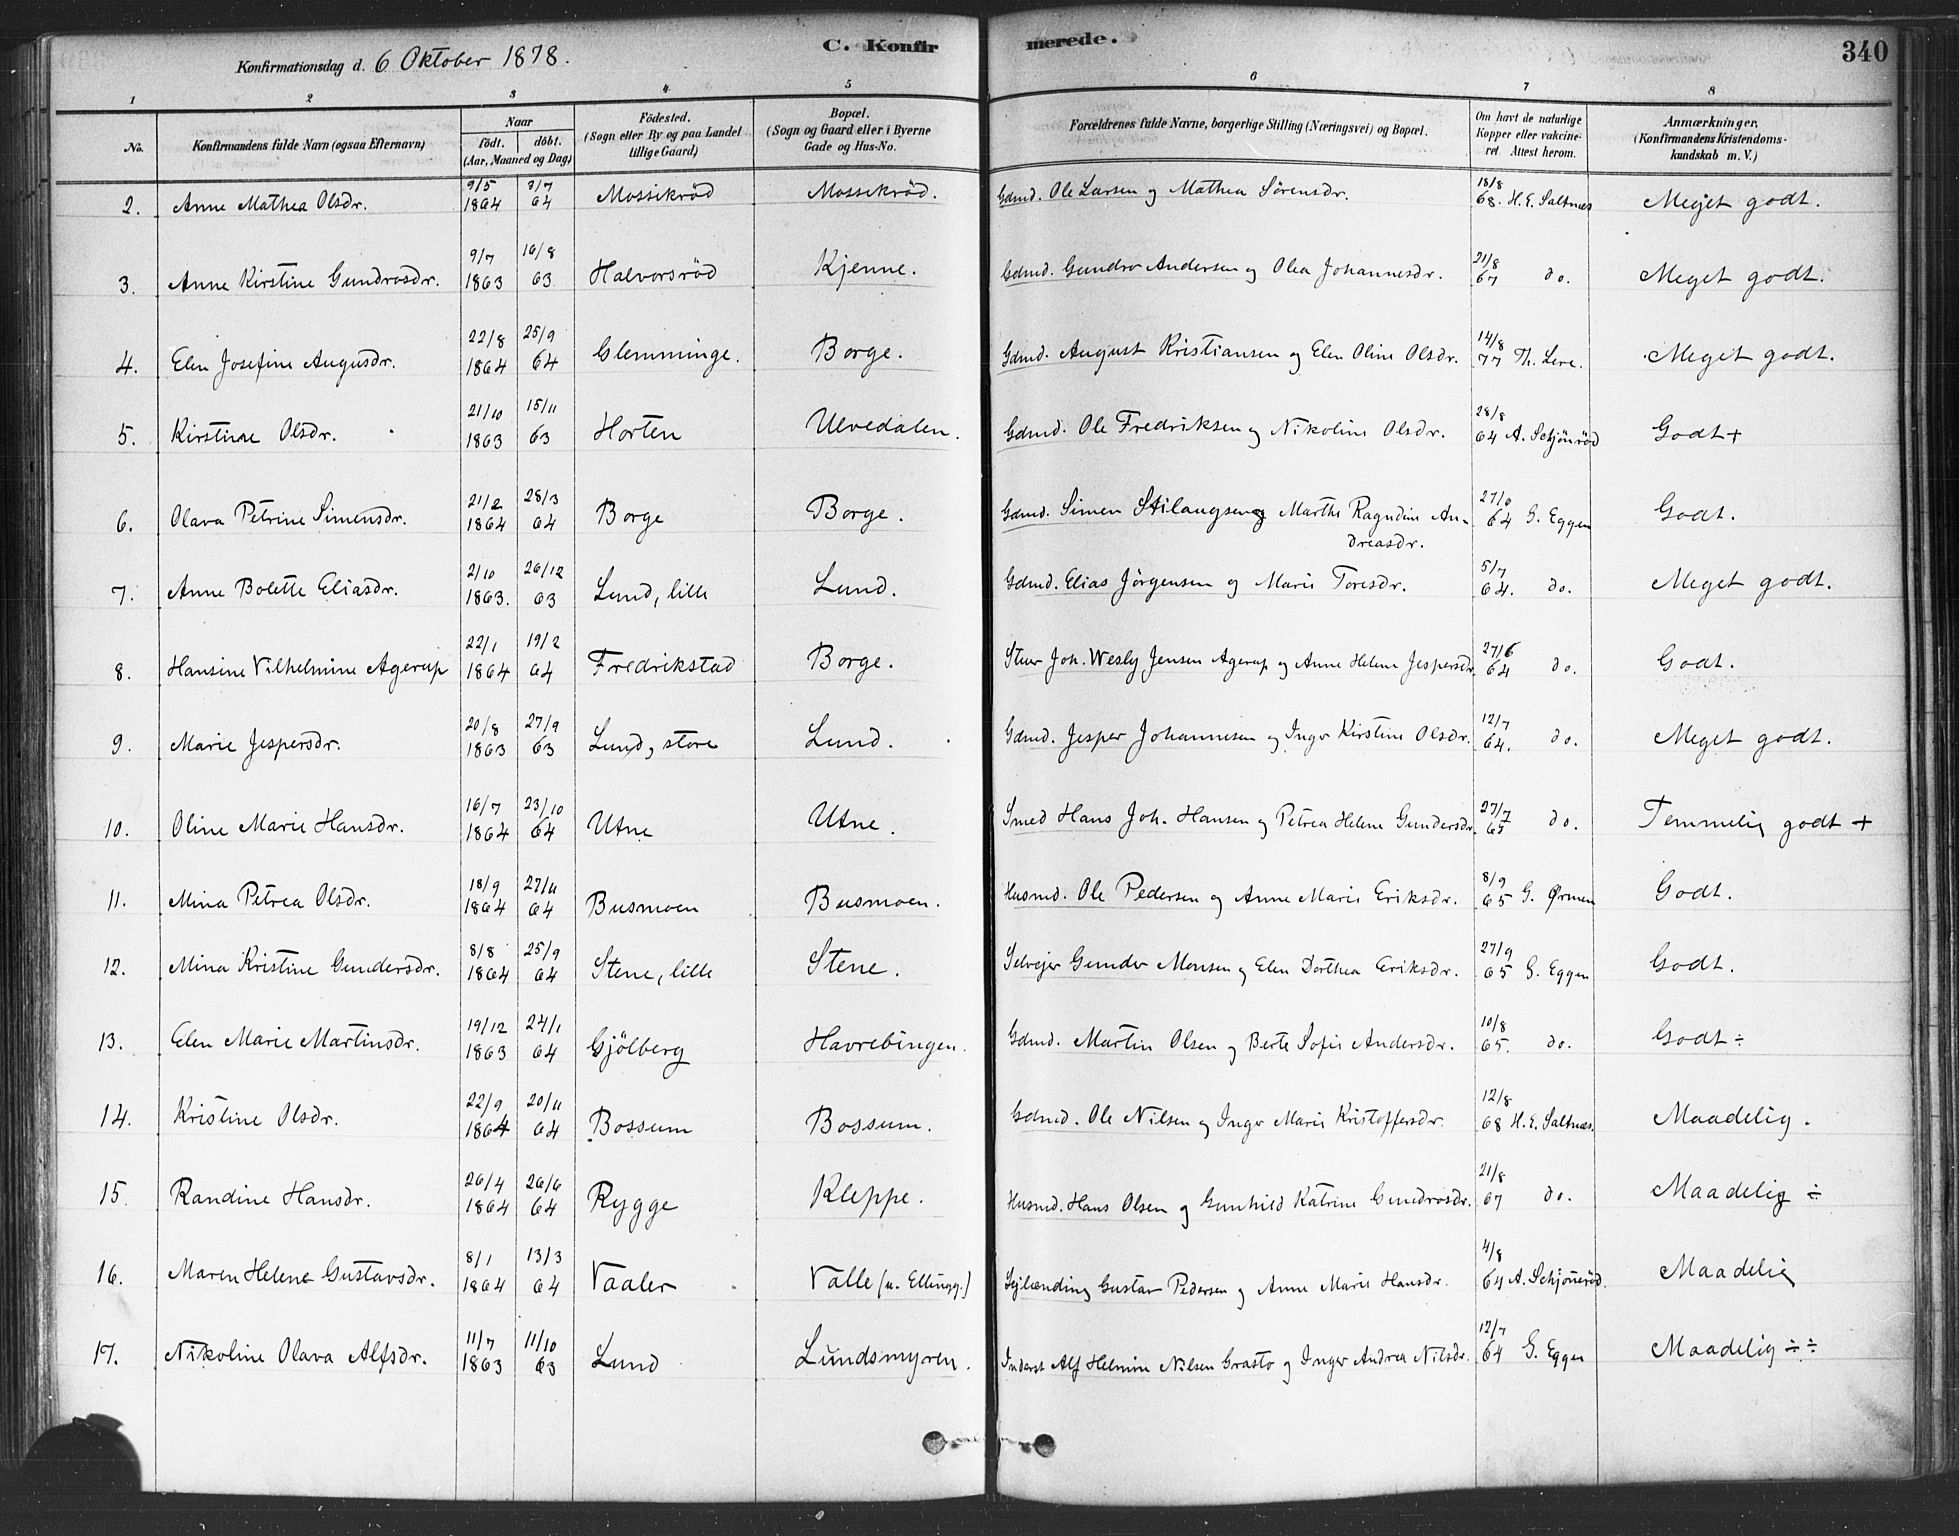 C. Konfirmerede.
340
Konfirmationsdag d. 6 Oktober 1878.
1 2 3 4 5 6 7 8
No. Konfirmandens fulde Navn (ogsaa Efternavn) Naar født. døbt. (Aar, Maaned og Dag) Fødested. (Sogn eller By og paa Landet tillige Gaard) Bopæl. (Sogn og Gaard eller i Byerne Gade og Hus-No. Forældrenes fulde Navne, borgerlige Stilling (Næringsvei) og Bopæl. Om havt de naturlige Kopper eller vakcineret. Attest herom. Anmærkninger, (Konfirmandens Kristendomskundskab m. V.)
2. Anne Mathea Olsdr. 9/5 1864 3/7 64 Mossikröd Mossikröd. Gdmd. Ole Larsen og Mathea Sörensdr. 18/8 68. H.E. Saltnæs Meget godt.
3. Anne Kirstine Gundrosdr. 9/7 1863 16/8 63 Halvorsröd Kjenne. Gdmd. Gundro Andersen og Olea Johannesdr. 21/8 67 do. Meget godt.
4. Elen Josefine Augusdr. 22/8 1864 25/9 64 Glemminge. Borge. Gdmd. August Kristiansen og Elen Oline Olsdr. 14/8 77 Th. Lere. Meget godt.
5. Kirstine Olsdr. 21/10 1863 15/11 63 Horten Ulvedalen. Gdmd. Ole Fredriksen og Nikoline Olsdr. 28/8 64 A. Schjönröd Godt+
6. Olava Petrine Simensdr. 21/2 1864 28/3 64 Borge Borge. Gdmd. Simen Stilaugsen og Marthe Ragndine Andreasdr. 27/6 64 G. Eggen Godt.
7. Anne Bolette Eliasdr. 2/10 1863. 26/12 63 Lund, lille Lund. Gdmd. Elias Jörgensen og Marie Toresdr. 5/7 64. do. Meget godt.
8. Hansine Vilhelmine Agerup 22/1 1864 19/2 64 Fredrikstad Borge. Stuer Joh. Wesly Jensen Agerup og Anne Helene Jespersdr. 27/6 64 do. Godt.
9. Marie Jespersdr. 20/8 1863 27/9 63 Lund, store Lund. Gdmd. Jesper Johannesen og Inger Kirstine Olsdr. 12/7 64. do. Meget godt.
10. Oline Marie Hansdr. 16/7 1864 23/10 64 Utne Utne. Smed Hans Joh. Hansen og Petrea Helene Gundersdr. 27/7 65 do. Temmelig godt +
11. Mina Petrea Olsdr. 18/9 1864 27/11 64 Busmoen Busmoen. Husmd. Ole Pedersen og Anne Marie Eriksdr. 8/9 65 G. Ørmen Godt.
12. Mina Kristine Gundersdr. 8/8 1864 25/9 64 Stene, lille Stene. Selvejer Gunder Monsen og Elen Dorthea Eriksdr. 27/9 65 G. Eggen Godt.
13. Elen Marie Martinsdr. 19/12 1863 24/1 64 Gjölberg Havrebingen. Gdmd. Martin Olsen og Berte Sofie Andersdr. 10/8 65. do. Godt ÷
14. Kristine Olsdr. 22/9 1864 20/11 64 Bossum Bossum. Gdmd. Ole Nilsen og Inger Marie Kristoffersdr. 12/8 68 H.E. Saltnæs. Maadelig.
15. Randine Hansdr. 26/4 1864 26/6 64 Rygge Kleppe. Husmd. Hans Olsen og Gunhild Katrine Gundrosdr. 21/8 67 do. Maadelig ÷
16. Maren Helene Gustavsdr. 8/1 1864 13/3 64 Vaaler Valle (u. Ellingg.) Sejlænding Gustav Pedersen og Anne Marie Hansdr. 4/8 64 A. Schjönröd. Maadelig
17. Nikoline Olava Alfsdr. 11/7 1863 11/10 63 Lund Lundsmyren. Inderst Alf Helmine Nilsen Grasto og Inger Andrea Nilsdr. 12/7 64 G. Eggen Maadelig ÷÷